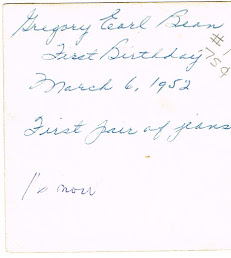 Gregory Earl Bean
First Birthday
March 6, 1952
First pair of jeans
now
#1